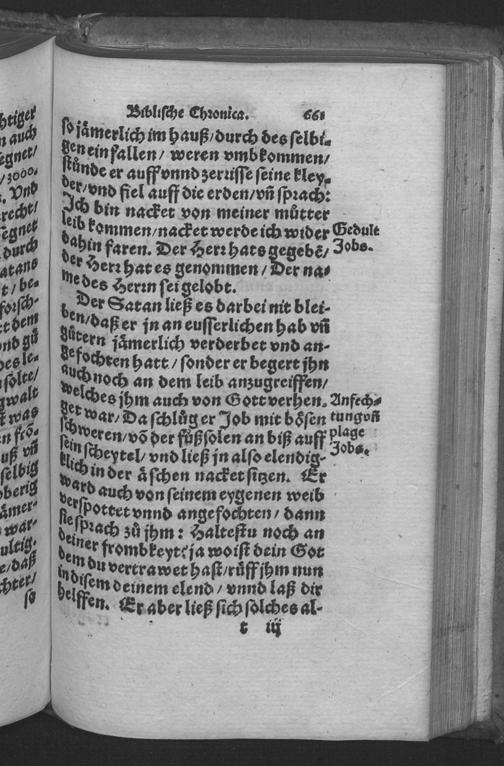 htiger
n auch
egnet/
/3000.
. Vnd
recht/
egnet
durch
atans
t/be-
forsch-
t dem
nd gů
des le-
solte/
gwalt
t was
n frö-
uß vñ
selbig
oberig
ämer-
war-
ultig.
e/daß
chter/
so
Biblische Chronica. 661
so jämerlich im hauß/durch des selbi-
gen einfallen/ weren vmbkommen/
stůnde er auff vnnd zerrisse seine kley-
der/vnd fiel auff die erden/vñ sprach:
Ich bin nacket von meiner můtter
leib kommen/nacket werde ich wider
dahin faren. Der Herr hats gegebẽ/
der Herr hat es genommen/ Der na-
me des Herrn sei gelobt.
Gedult
Jobs.
Der Satan ließ es darbei nit blei-
ben/daß er jn an eusserlichen hab vñ
gütern jämerlich verderbet vnd an-
gefochten hatt/ sonder er begert jhn
auch noch an dem leib anzugreiffen/
welches jhm auch von Gott verhen-
get war/Da schlůg er Job mit bösen
schweren/võ der fůßsolen an biß auff
sein scheytel/ vnd ließ jn also elendig-
klich in der äschen nacket sitzen. Er
ward auch von seinem eygenen weib
verspottet vnnd angefochten/ dann
sie sprach zů jhm: Haltestu noch an
deiner frombkeyt? ja wo ist dein Got
dem du vertrawet hast/růff jhm nun
in disem deinem elend/ vnnd laß dir
helffen. Er aber ließ sich solches al-
Anfech-
tung vñ
plage
Jobs.
t iij